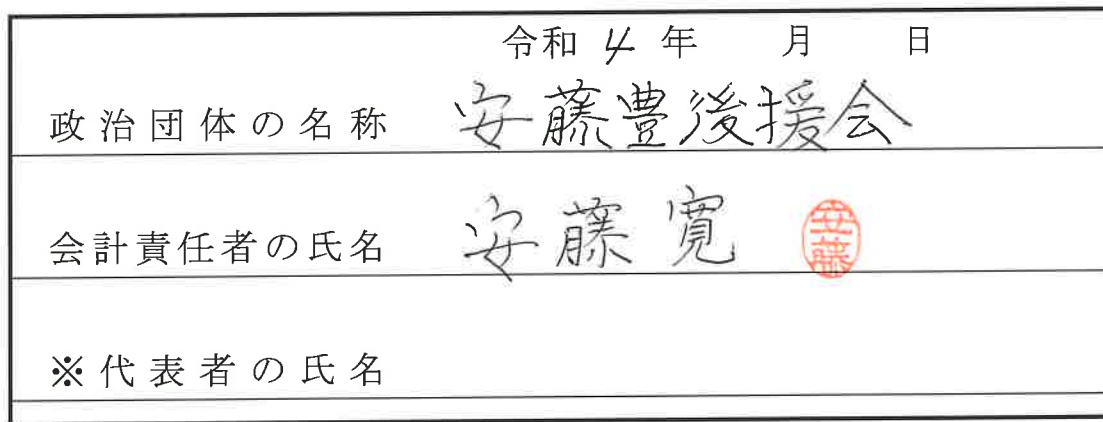 令和 4 年 月 日
政治団体の名称 安藤豊後援会
会計責任者の氏名 安藤寛 安藤
※代表者の氏名